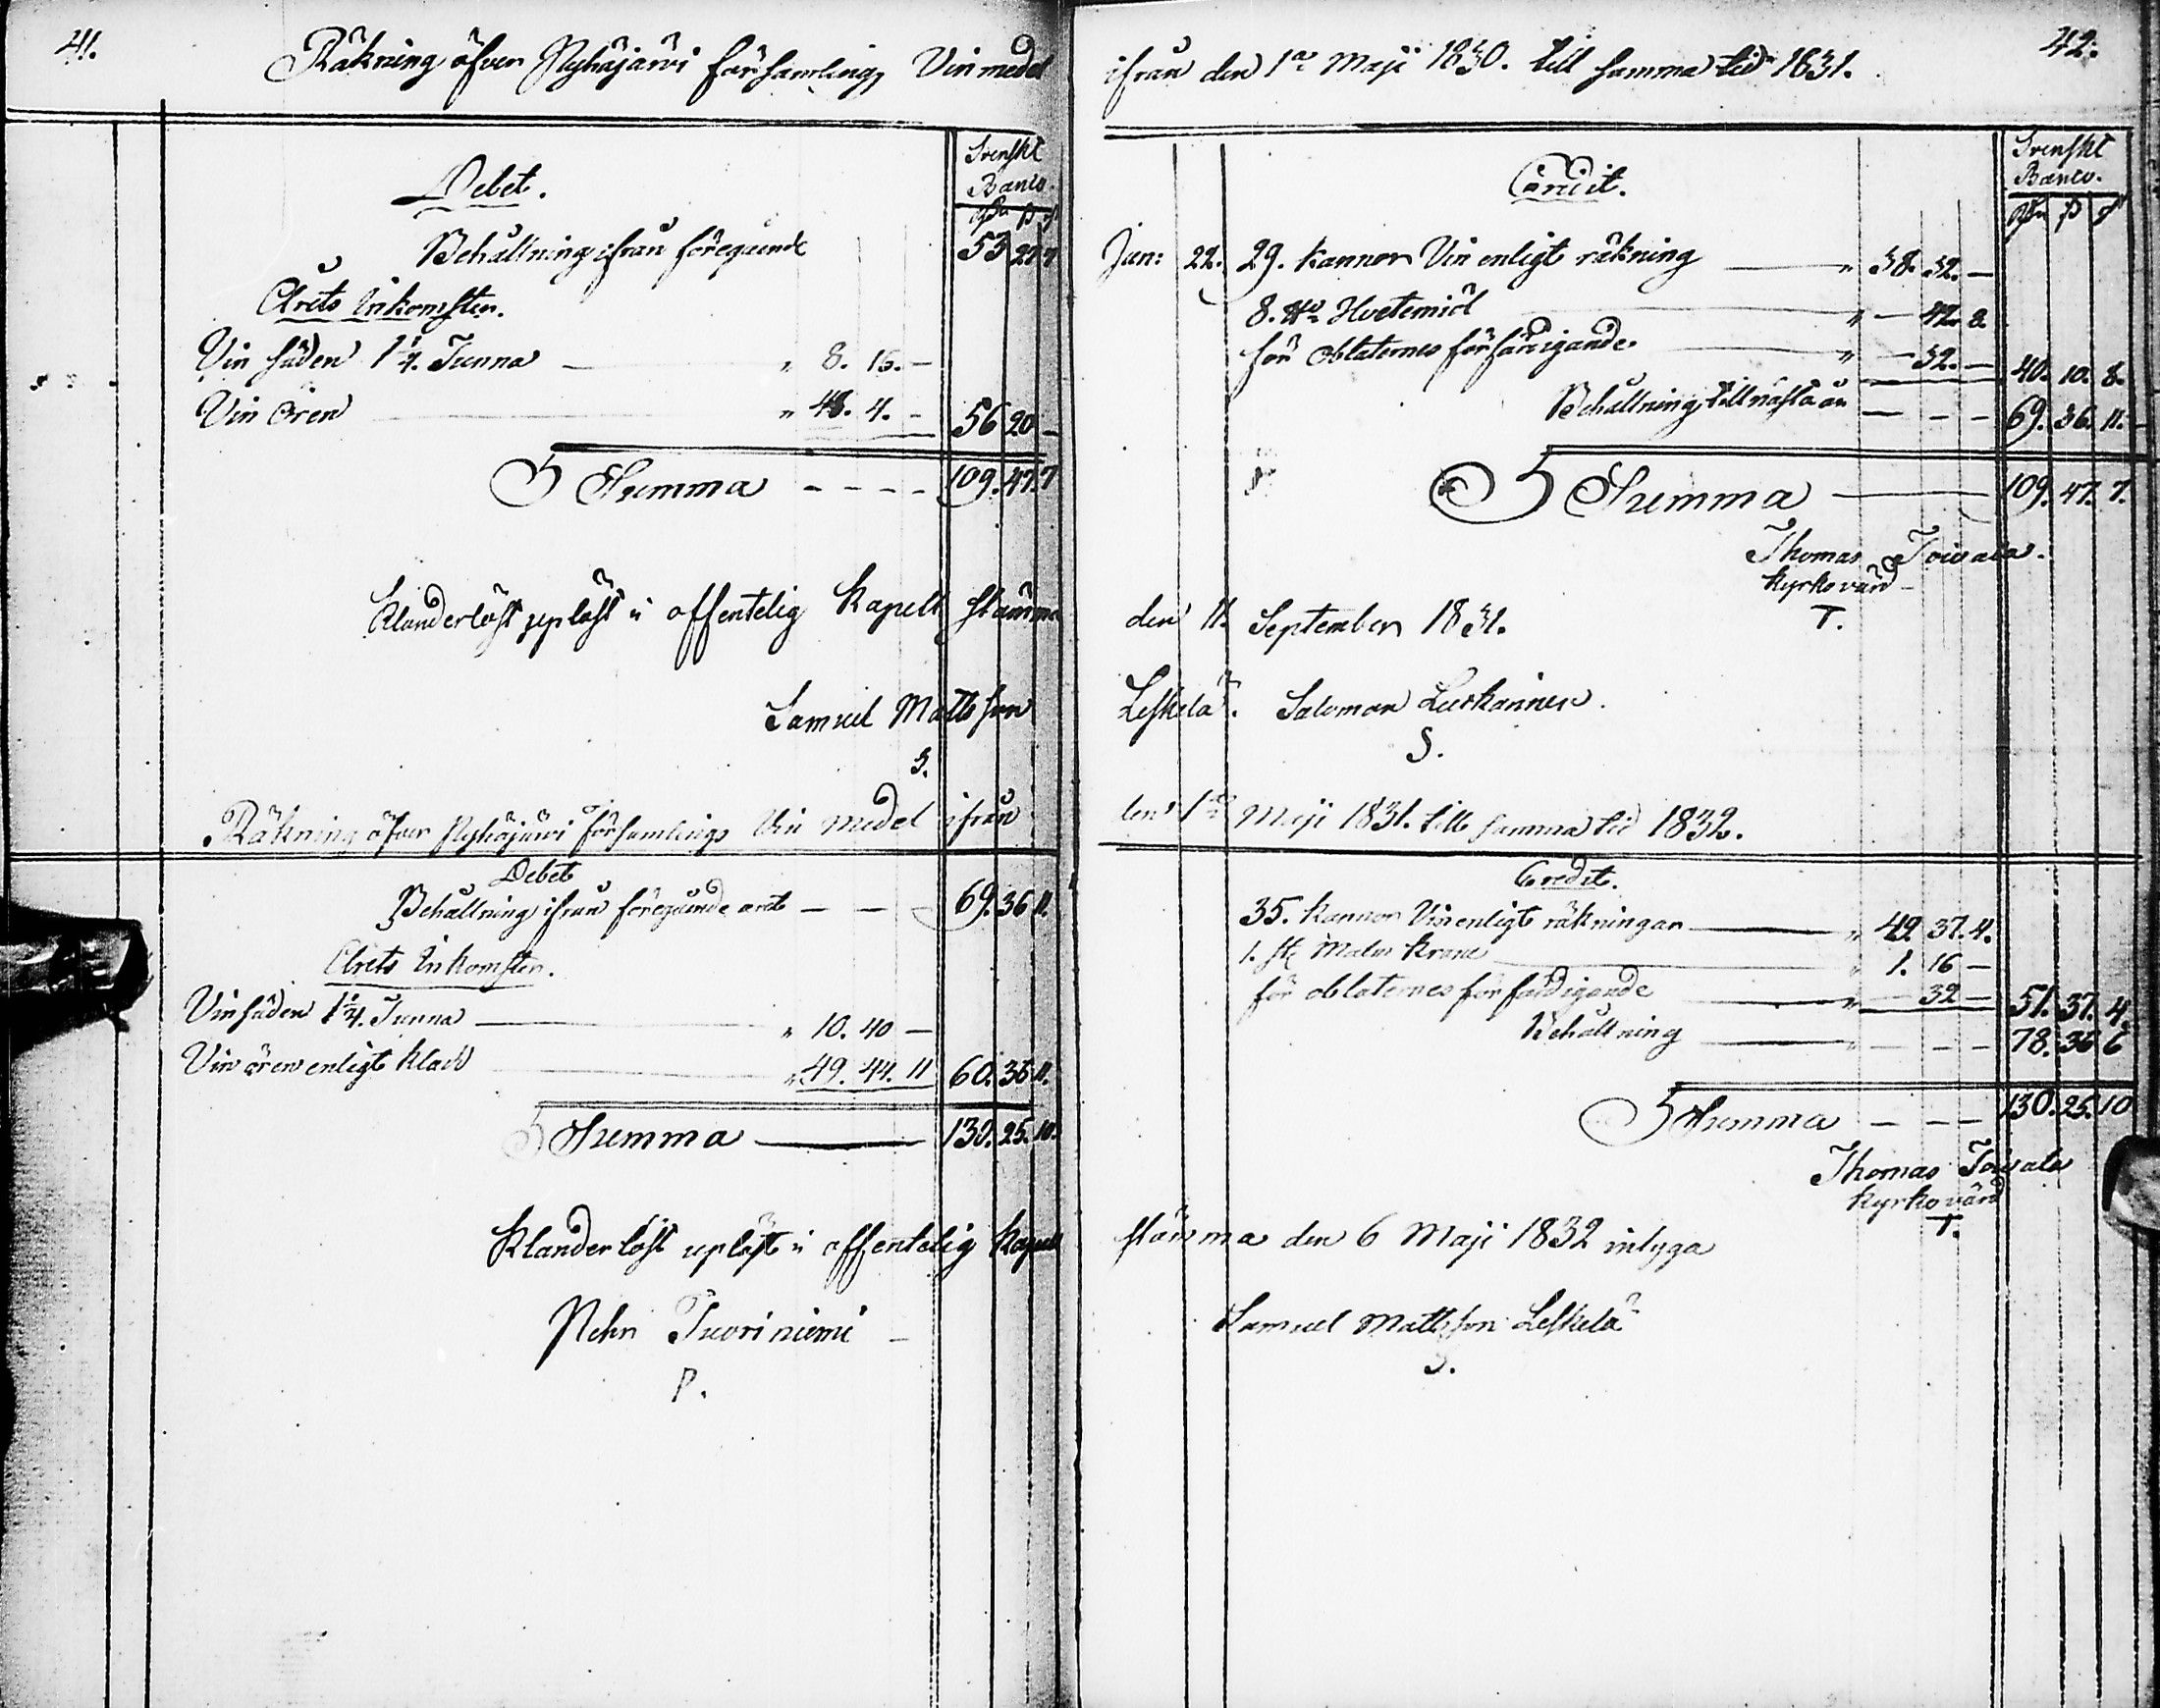 41.
Räkning öfver Pyhäjärvi församlings Vin medel
Svenskt
Banco.
Debet.
Rdr ß rst
Behållning ifrån föregående
53 27 7
Årets Inkomster.
Vin säden 1 1/4. Tunna — " 8. 16. —
Vin ören " 48. 4. - 56 20 —
Summa - - - - 109. 47. 7
Klanderlöst upläst i offentelig Kapells stämma
Samuel Mattsson
S.
Räkning öfver Pyhäjärvi Församlings Vin medel ifrån
Debet
Behållning ifrån föregående året — — — 69. 36 11.
Årets Inkomster.
Vinsäden 1 1/4. Tunna — " 10. 40 —
Vin ören enligt Kladd " 49. 44. 11 60. 36 11.
Summa — 130. 25. 10.
Klanderlöst upläst i offentelig Kapell
Pehr Tuoriniemi —
P.
42.
ifrån den 1a Maji 1830. till samma tid 1831.
Svenskt
Banco.
Credit.
Rdr ß rst
Jan: 22. 29. Kannor Vin enligt räkning — " 38. 32. —
8. Hvetemjöl " — 42. 8.
för oblaternes förfärdigande " — 32. — 40. 10. 8.
Behållning till nästa år — — — 69. 36. 11. —
Summa — 109. 47. 7.
Thomas Toivala.
Kyrkovärd
T.
den 11. September 1831.
Leskelä. Salomon Leskainen.
S.
den 1a Maji 1831. till samma tid 1832.
Credit.
35. Kannor Vin enligt räkningar — " 49. 37. 4.
1. st Malm Kran " 1. 16 —
för oblaternes förfärdigande — " — 32 — 51. 37. 4.
Behållning — " — — — 78. 36 6
Summa — — — 130. 25. 10
Thomas Toivala
Kyrkovärd
T.
stämma den 6 Maji 1832 intyga
Samuel Mattsson Leskelä
S.